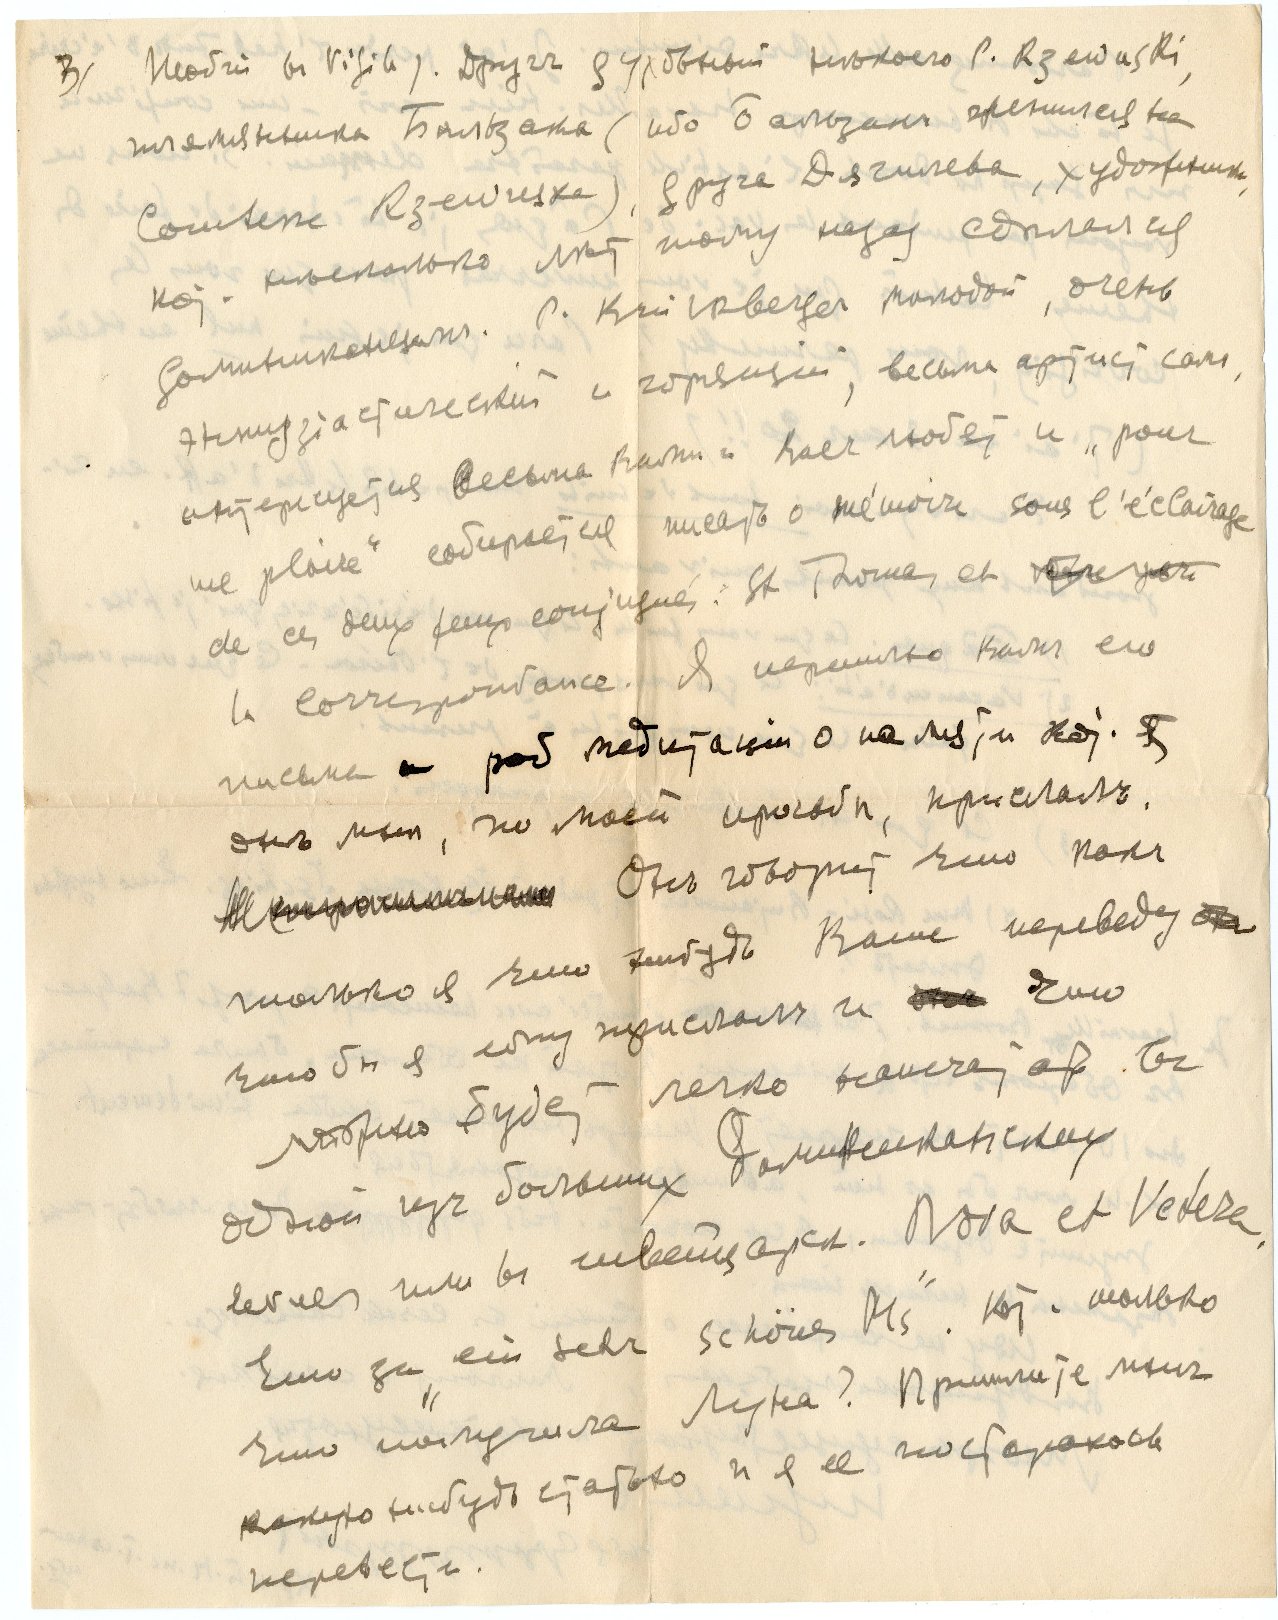 3/ въ Vigile). Другъ духовный нѣкоего P. Rzewuski,
племянника Бальзака (ибо Бальзакъ женился на
Comtesse Rzewuska), друга Дягилева, художника,
кот. нѣсколько лѣт тому назад сдѣлался
доминиканцемъ. P. молодой, очень
энтузіастический и горящий, весьма артист самъ,
интересуется весьма Вами и Васъ любят и „pour
me plaire“ собирается писать о mémoire sous l'éclairage
de ces deux feux conjugués: St Thomas et
la Correspondance. Я перешлю Вамъ его
письма и род медитации о памяти кот.
онъ мнѣ, по моей просьбѣ, прислалъ.
Онъ говорит что какъ
только я что нибудь Ваше переведу
чтобы я ему прислалъ и что
можно будет легко напечатать въ
одной изъ большихъ Доминиканскихъ
revues или въ швейцарск. Nova et Vetera.
Что за „ein sehr schönes Ms“. кот. только
что получила Луна? Пришлите мнѣ
какую нибудь статью и я ее постараюсь
перевести.